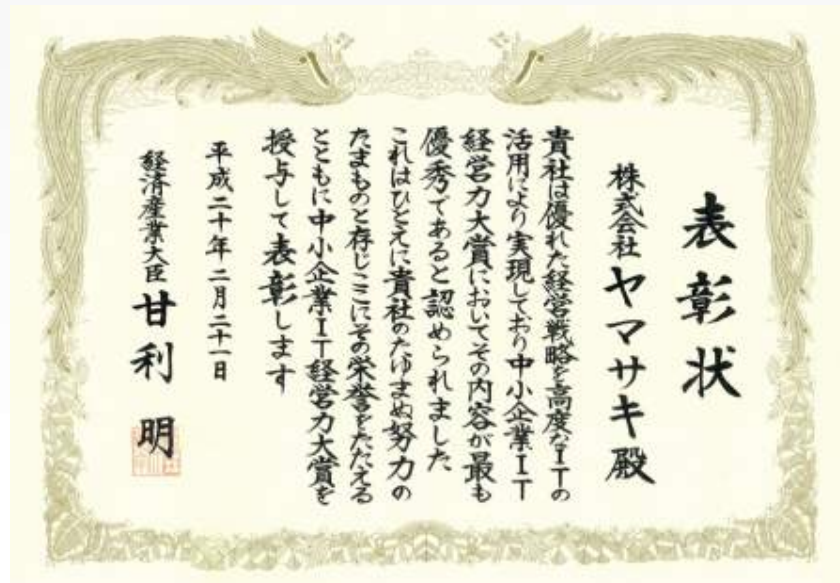 表彰状
株式会社 ヤマサキ殿
貴社は優れた経営戦略を高度なITの
活用により実現しており中小企業IT
経営力大賞においてその内容が最も
優秀であると認められました
これはひとえに貴社のたゆまぬ努力の
たまものと存じここにその栄誉をたたえる
とともに中小企業IT経営力大賞を
授与して表彰します
平成二十年二月二十一日
経済産業大臣 甘利 明